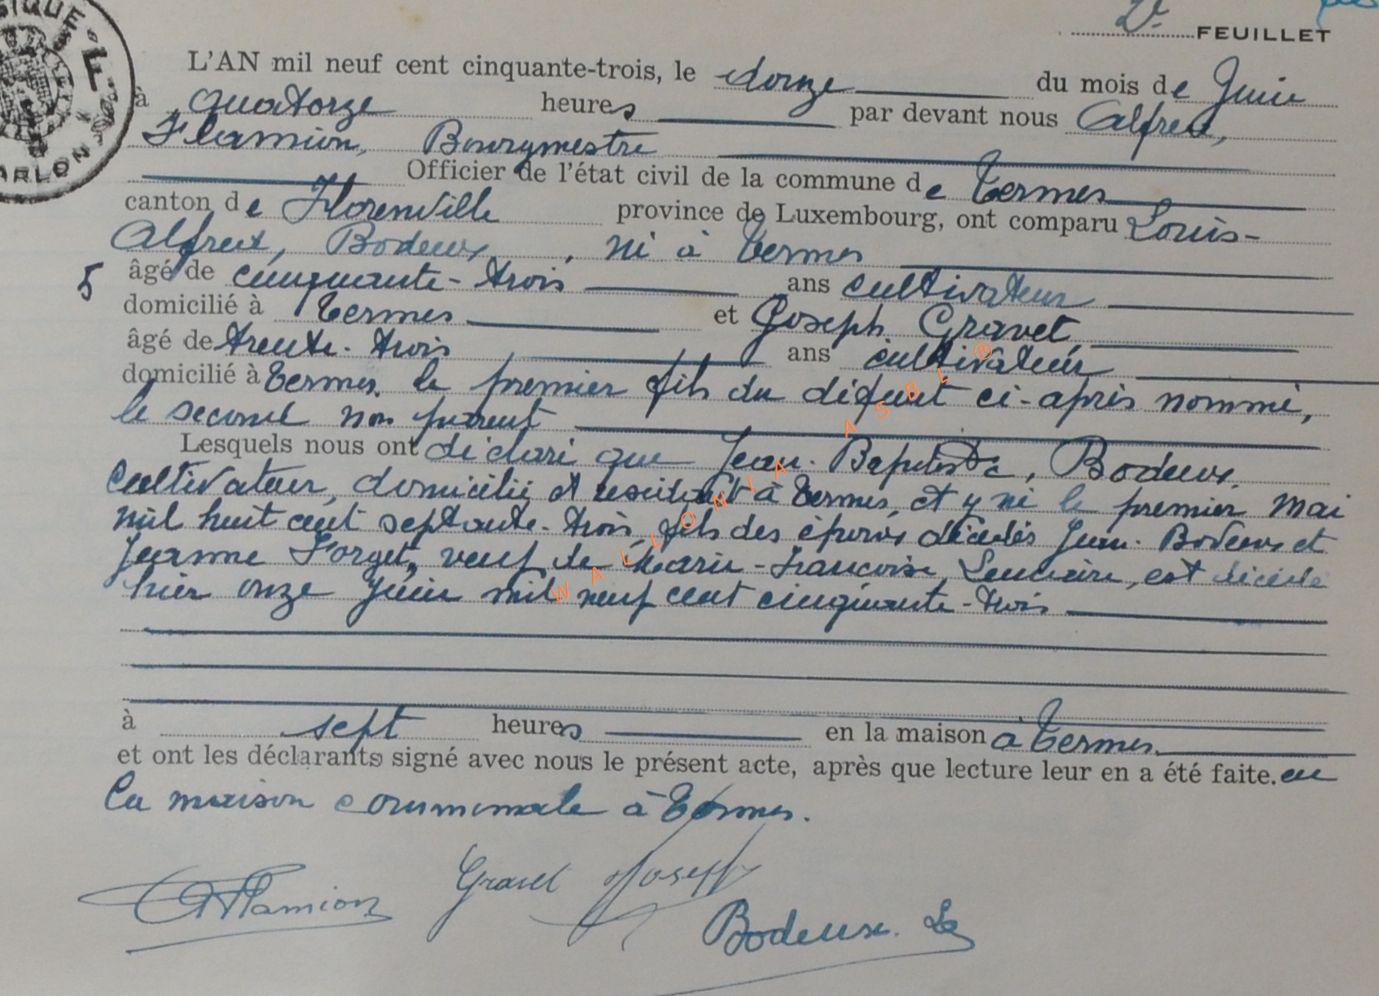 2e FEUILLET
L'AN mil neuf cent cinquante-trois, le douze du mois de Juin
à quatorze heures par devant nous Alfred,
Flamion, Bourgmestre
Officier de l'état civil de la commune de Termes
canton de Florenville province de Luxembourg, ont comparu Louis-
Alfred, Bodeux, né à Termes
5 âgé de cinquante-trois ans cultivateur
domicilié à Termes et Joseph Gravet,
âgé de trente-trois ans cultivateur
domicilié à Termes, le premier fils du défunt ci-après nommé,
le second non parent
Lesquels nous ont déclaré que Jean-Baptiste, Bodeux,
cultivateur, domicilié et résidant à Termes, et y né le premier mai
mil huit cent septante-trois, fils des époux décédés Jean-Bodeux et
Jeanne Forget, veuf de Marie-Françoise, est décédé
hier onze Juin mil neuf cent cinquante-trois
à sept heures en la maison à Termes
et ont les déclarants signé avec nous le présent acte, après que lecture leur en a été faite. en
la maison communale à Termes.
Flamion
Gravet Joseph
Bodeux. L
WALLONIA ASBL ®
BELGIQUE
ARLON